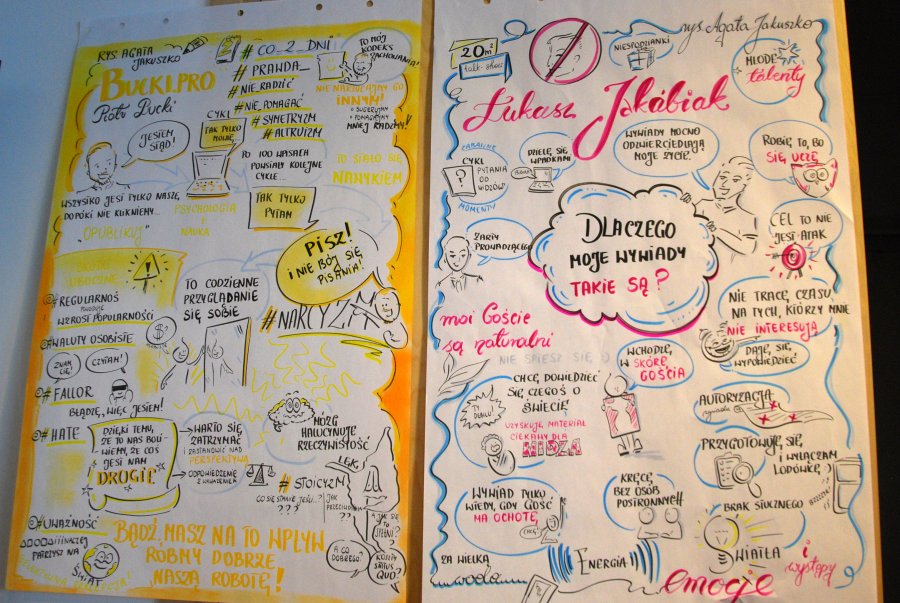 RYS AGATA
JAKUSZKO
BUCKI.PRO
Piotr Bucki
#CO_2_DNI
#PRAWDA
#NIE RADZIĆ
#NIE POMAGAĆ
#SYMETRYZM
#ALTRUIZM
TO MÓJ
KODEKS
ZACHOWANIA!
NIE NARZUCAJMY GO
INNYM!
SUGERUJMY
POMAGAJMY
MNIEJ RADŹMY!
JESTEM
STĄD!
CYKL
TAK TYLKO
MÓWIĘ
PO 100 WPISACH
POWSTAŁY KOLEJNE
CYKLE...
TO STAŁO SIĘ
NAWYKIEM
WSZYSTKO JEST TYLKO NASZE,
DOPÓKI NIE KLIKNIEMY...
"OPUBLIKUJ"
PSYCHOLOGIA
I
NAUKA
TAK TYLKO
PYTAM
PISZ!
I NIE BÓJ SIĘ
PISANIA!
TO CODZIENNE
PRZYGLĄDANIE
SIĘ SOBIE
#NARCYZM
#REGULARNOŚĆ
POWODUJE
WZROST POPULARNOŚCI
#WALUTY OSOBISTE
$
ZNAM
CIĘ!
CZYTAM!
#FALLOR
BŁĄDZĘ, WIĘC JESTEM!
#HATE
DZIĘKI TEMU,
ŻE TO NAS BOLI
WIEMY, ŻE COŚ
JEST NAM
DROGIE
WARTO SIĘ
ZATRZYMAĆ
I ZASTANOWIĆ NAD
PERSPEKTYWĄ
ODPOWIEDZENIE
MÓZG
HALUCYNUJE
RZECZYWISTOŚĆ
LĘKI
#STOICYZM
CO SIĘ STANIE JEŚLI...?
???
JAK
PRZECIWDZIAŁAĆ
??
A JAK SIĘ
TO
SPEŁNI?
A CO
DOBREGO?
KOSZTY
STATUS
QUO?
#UWAŻNOŚĆ
INACZEJ
PATRZYSZ NA
ŚWIAT
BĄDŹ, MASZ NA TO WPŁYW
RÓBMY DOBRZE
NASZĄ ROBOTĘ!
20m²
talk-show
NIESPODZIANKI
rys Agata Jakuszko
MŁODE
talenty
Łukasz Jakóbiak
ZABAWNE
CYKL
?
PYTANIA
OD
WIDZÓW
MOMENTY
DZIELĘ SIĘ
WPADKAMI
WYWIADY MOCNO
ODZWIERCIEDLAJĄ
MOJE ŻYCIE.
ROBIĘ TO, BO
SIĘ UCZĘ
ŻARTY
PROWADZĄCEGO
DLACZEGO
MOJE WYWIADY
TAKIE SĄ?
CEL TO NIE
JEST ATAK
NIE TRACĘ CZASU
NA TYCH, KTÓRZY MNIE
NIE INTERESUJĄ
moi Goście
są naturalni
NIE SPIESZ SIĘ :)
WCHODZĘ
W SKÓRĘ
GOŚCIA
DAJĘ SIĘ
WYPOWIEDZIEĆ
CHCĘ DOWIEDZIEĆ
SIĘ CZEGOŚ O
ŚWIECIE!
UZYSKUJĘ MATERIAŁ
CIEKAWY DLA
WIDZA
AUTORYZACJA
PRZYGOTOWUJĘ SIĘ
I WYŁĄCZAM
LODÓWKĘ :)
WYWIAD TYLKO
WTEDY, GDY GOŚĆ
MA OCHOTĘ
CHCĘ!
KRĘCĘ
BEZ OSÓB
POSTRONNYCH
BRAK SZTUCZNEGO
ŚWIATŁA
ZA WIELKĄ
wodą
ENERGIA
emocje
i
występy